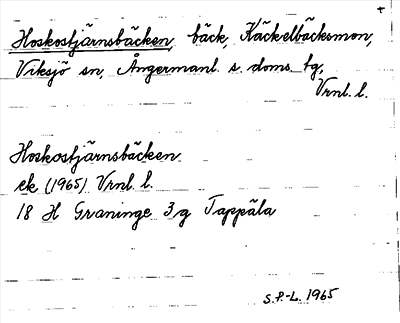 +
Hoskostjärnsbäcken, bäck, Käckelbäcksmon,
Viksjö sn, Ångermanl. s. doms. tg,
Vrnl. l.
Hoskostjärnsbäcken
ek (1965) Vrnl. l.
18 H Graninge 3 g Tappäla
S.P.-L. 1965